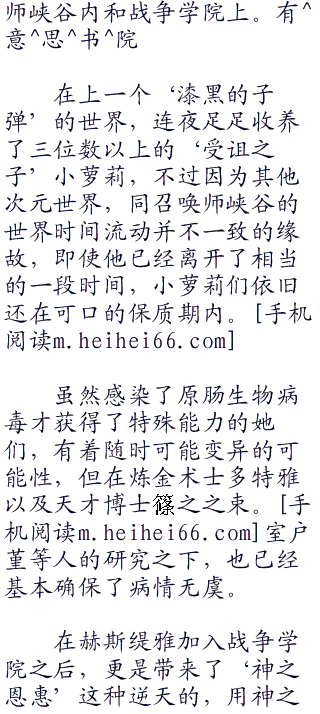 师峡谷内和战争学院上。有^
意^思^书^院
在上一个‘漆黑的子
弹’的世界，连夜足足收养
了三位数以上的‘受诅之
子’小萝莉，不过因为其他
次元世界，同召唤师峡谷的
世界时间流动并不一致的缘
故，即使他已经离开了相当
的一段时间，小萝莉们依旧
还在可口的保质期内。[手机
阅读m.heihei66.com]
虽然感染了原肠生物病
毒才获得了特殊能力的她
们，有着随时可能变异的可
能性，但在炼金术士多特雅
以及天才博士篠之之束。[手
机阅读m.heihei66.com]室户
堇等人的研究之下，也已经
基本确保了病情无虞。
在赫斯缇雅加入战争学
院之后，更是带来了‘神之
恩惠’这种逆天的，用神之